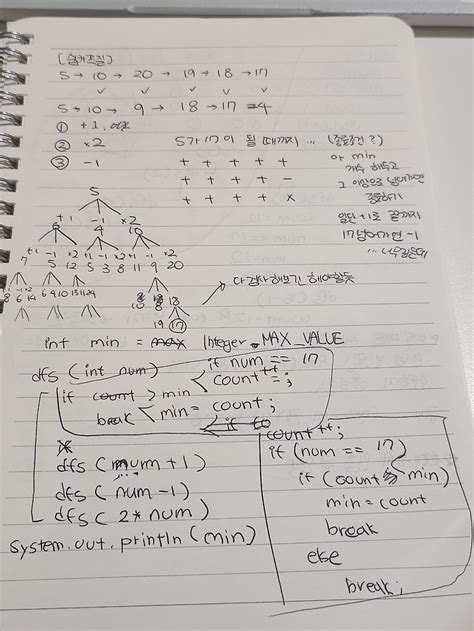 (숨바꼭질)
5 → 10 → 20 → 19 → 18 → 17
5 → 10 → 9 → 18 → 17 = 4
① +1,
② ×2 5가 17이 될 때까지 ... (종료조건?)
③ -1 + + + + + 아 min
+ + + + - 개수 해두고
+ + + + × 그 이상으로 넘어가면
종료하기
5 일단 +1로 끝까지
+1 -1 ×2 17 넘어가면 -1
6 4 10
+1 -1 ×2 +1 -1 ×2 +1 -1 ×2
7 5 12 5 3 8 11 9 20
8 6 14 6 4 10 13 11 24 10 8 18 → 다 검사해보긴 해야할듯
19 17
int min = Integer.MAX_VALUE
dfs (int num) if num == 17
if count > min count++;
break min = count;
if
dfs (num+1)
dfs (num -1)
dfs ( 2* num )
System.out.println(min)
count++;
if (num == 17)
if (count min)
min = count
break
else
break;